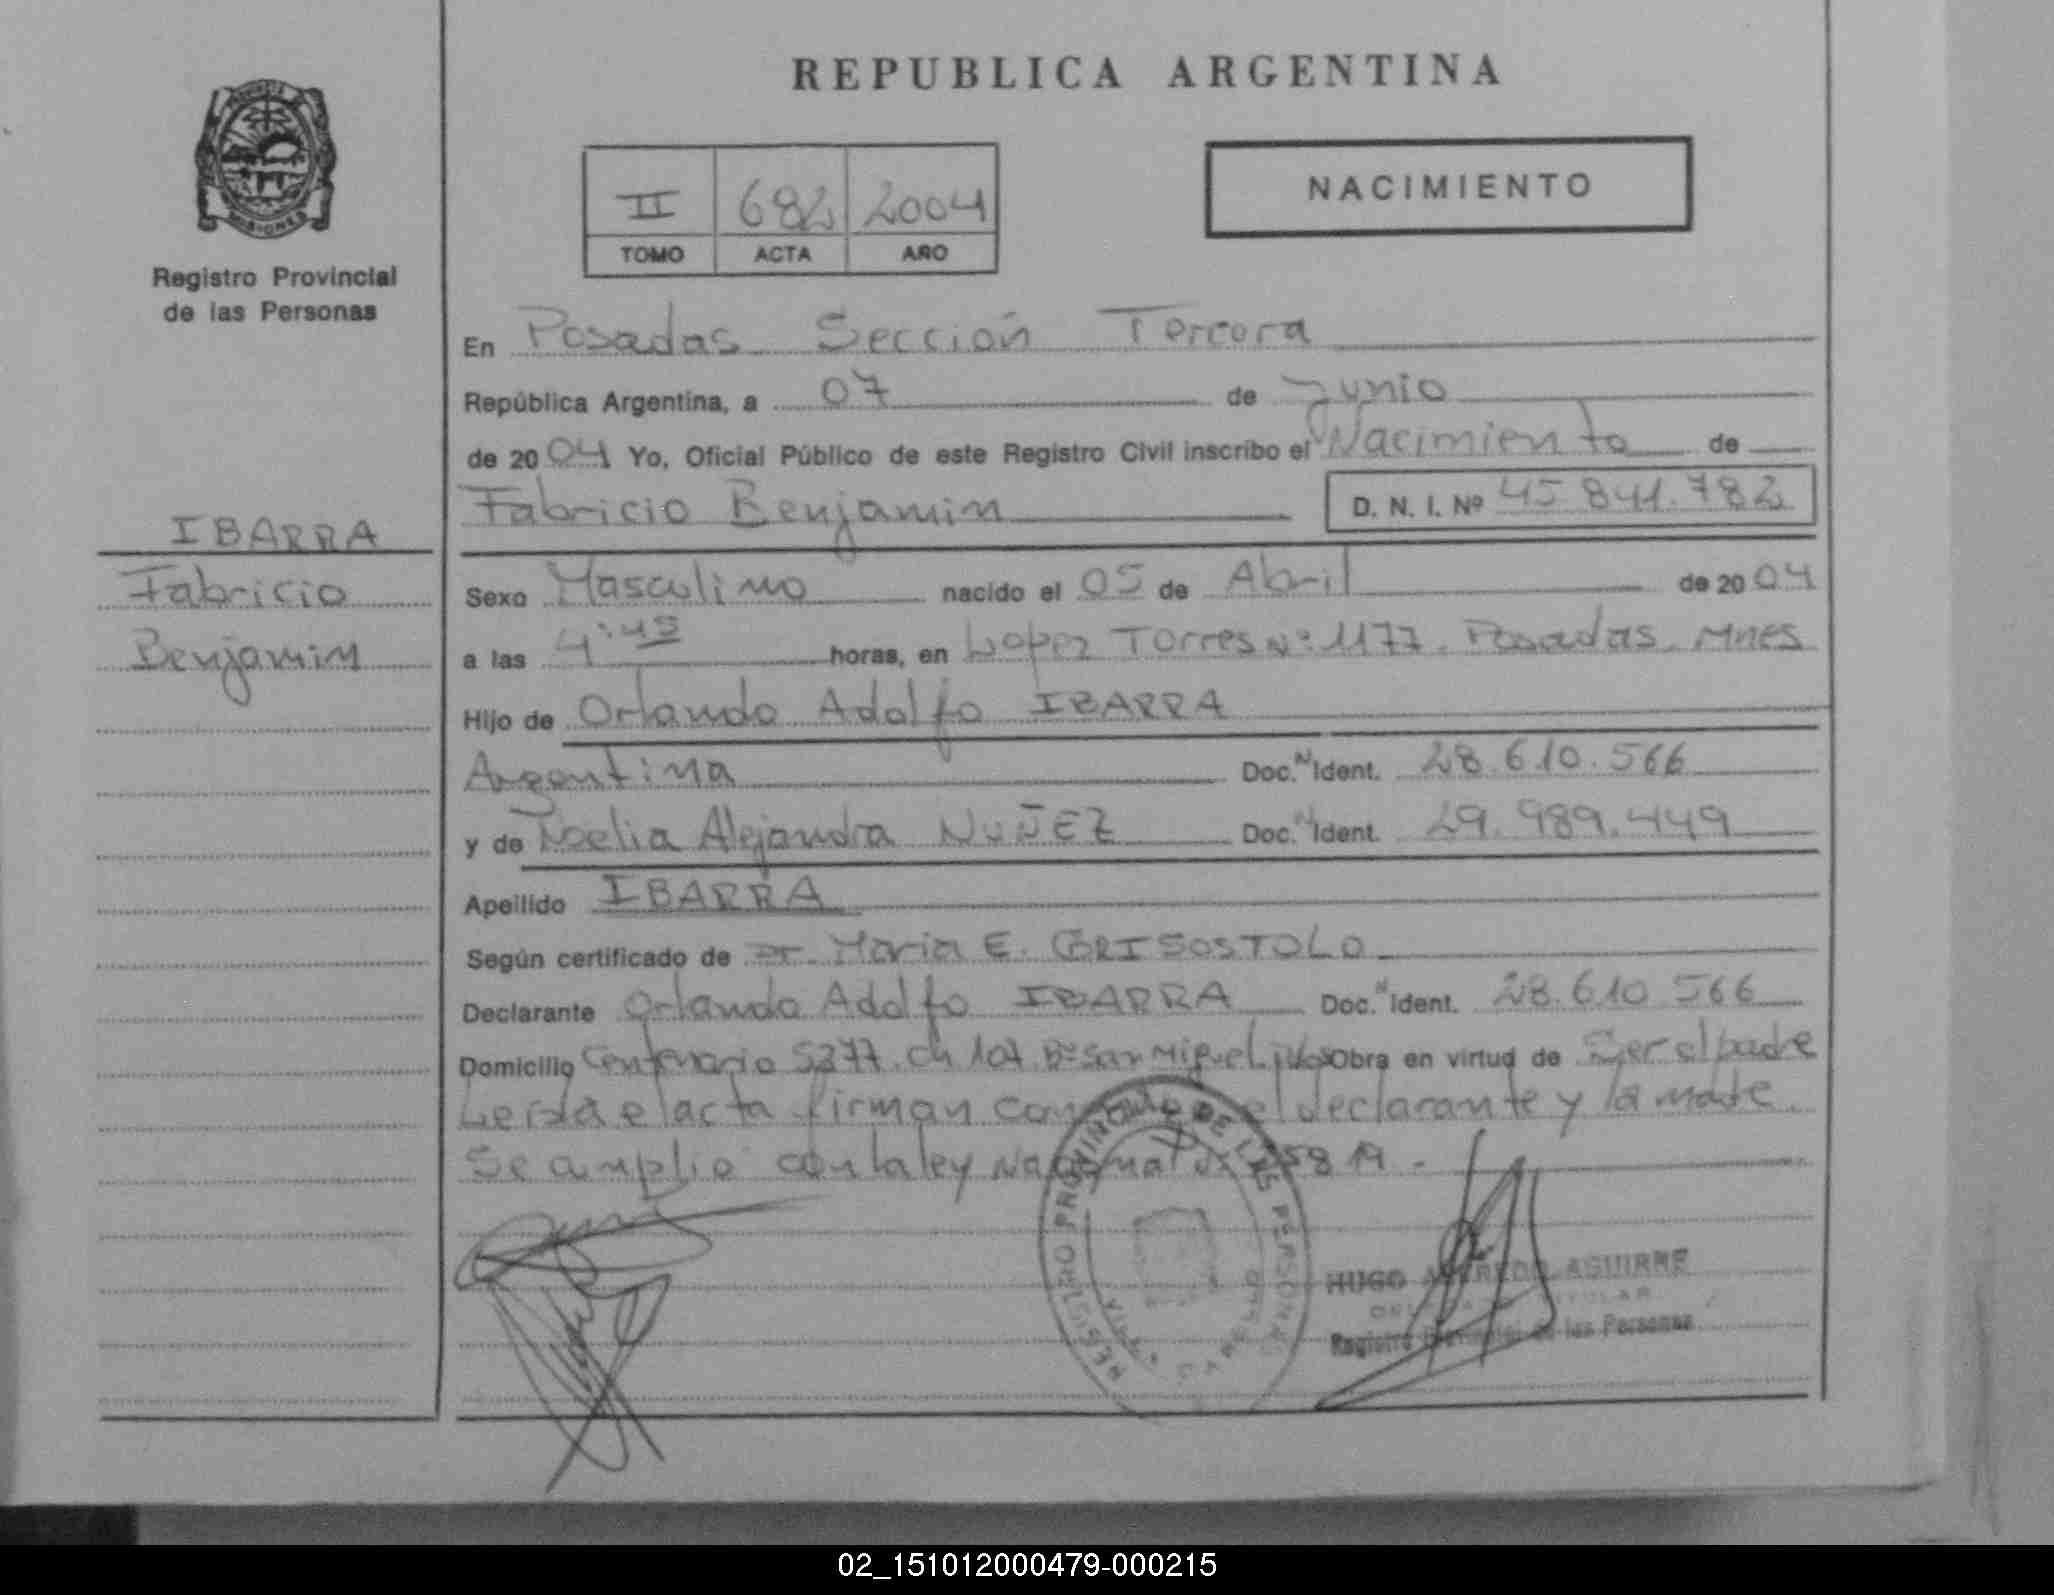 REPUBLICA ARGENTINA
PROVINCIA DE
MISIONES
Registro Provincial
de las Personas
II 682 2004
TOMO ACTA AÑO
NACIMIENTO
En Posadas Sección Tercera
República Argentina, a 07 de Junio
de 2004 Yo, Oficial Público de este Registro Civil inscribo el Nacimiento de
Fabricio Benjamin D. N. I. Nº 45.841.782
IBARRA
Fabricio
Benjamin
Sexo Masculino nacido el 05 de Abril de 2004
a las 4:45 horas, en Lopez Torres Nº: 1177. Posadas. Mnes
Hijo de Orlando Adolfo IBARRA
Argentina Doc. Ident. 28.610.566
y de Noelia Alejandra NUÑEZ Doc. Ident. 29.989.449
Apellido IBARRA
Según certificado de Dr. Maria E. GRISOSTOLO
Declarante Orlando Adolfo IBARRA Doc. Ident. 28.610.566
Domicilio Centenario 5377. Ch 107. Bº San Miguel Obra en virtud de Ser el padre
Leida el acta firman el declarante y la madre.
Se amplio con la ley Nacional 25819.-
REGISTRO PROVINCIAL DE LAS PERSONAS
VILLA CABELLO
HUGO ALFREDO AGUIRRE
DELEGADO TITULAR
Registro Provincial de las Personas
02_151012000479-000215